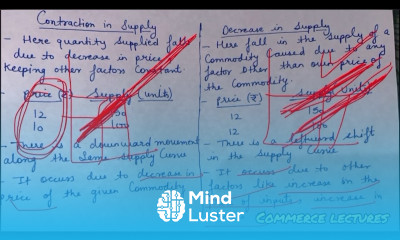 Contraction in Supply
- Here quantity Supplied falls
due to decrease in price
Keeping other factors Constant.
Price (₹) Supply (units)
12
10 100
- There is a downward movement
along the Same Supply Curve
- It occurs due to decrease in
price of the given Commodity
Decrease in Supply
- Here fall in the Supply of a
Commodity Caused due to any
factor other than own price of
the Commodity.
- price (₹) Supply units
12 150
12 100
- There is a leftward shift
in the Supply Curve
- It occurs due to other
factors like increase in the
of inputs, increase in
Mind
Luster
Commerce Lectures